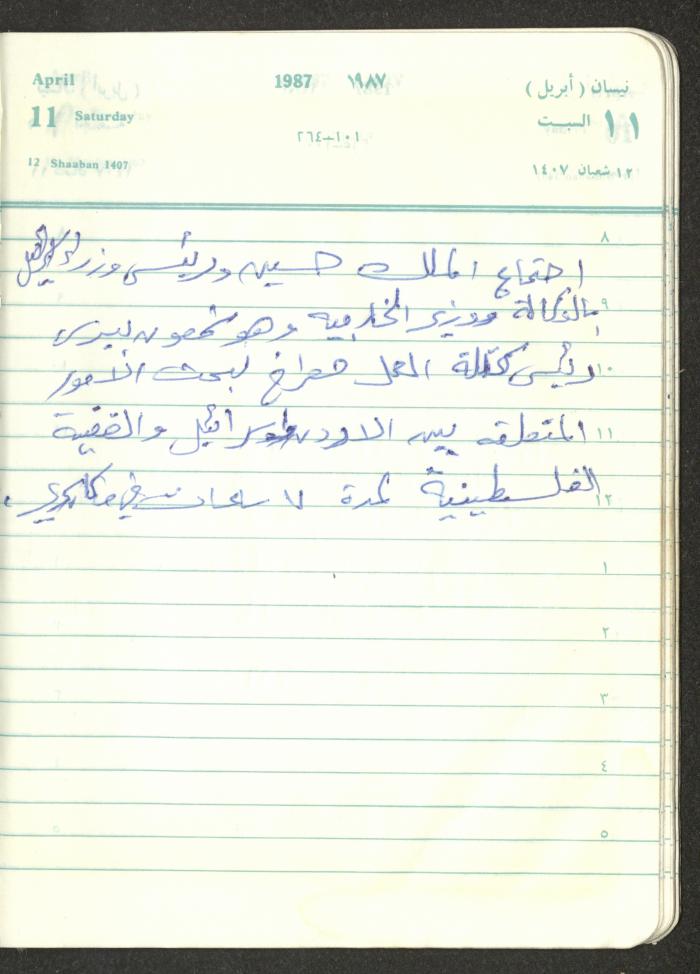 April 1987 ١٩٨٧ نيسان (أبريل)
11 Saturday ١١ السبت
١٠١-٢٦٤
12 Shaaban 1407 ١٢ شعبان ١٤٠٧
٨
اجتماع الملك حسين ورئيس وزراء
٩
بالوكالة ووزير الخارجية وهو شمعون بيرس
١٠
رئيس كتلة العمل لبحث الأمور
١١
المتعلقه بين الاردن واسرائيل والقضية
١٢
الفلسطينية لمدة ٧ ساعات في
١
٢
٣
٤
٥